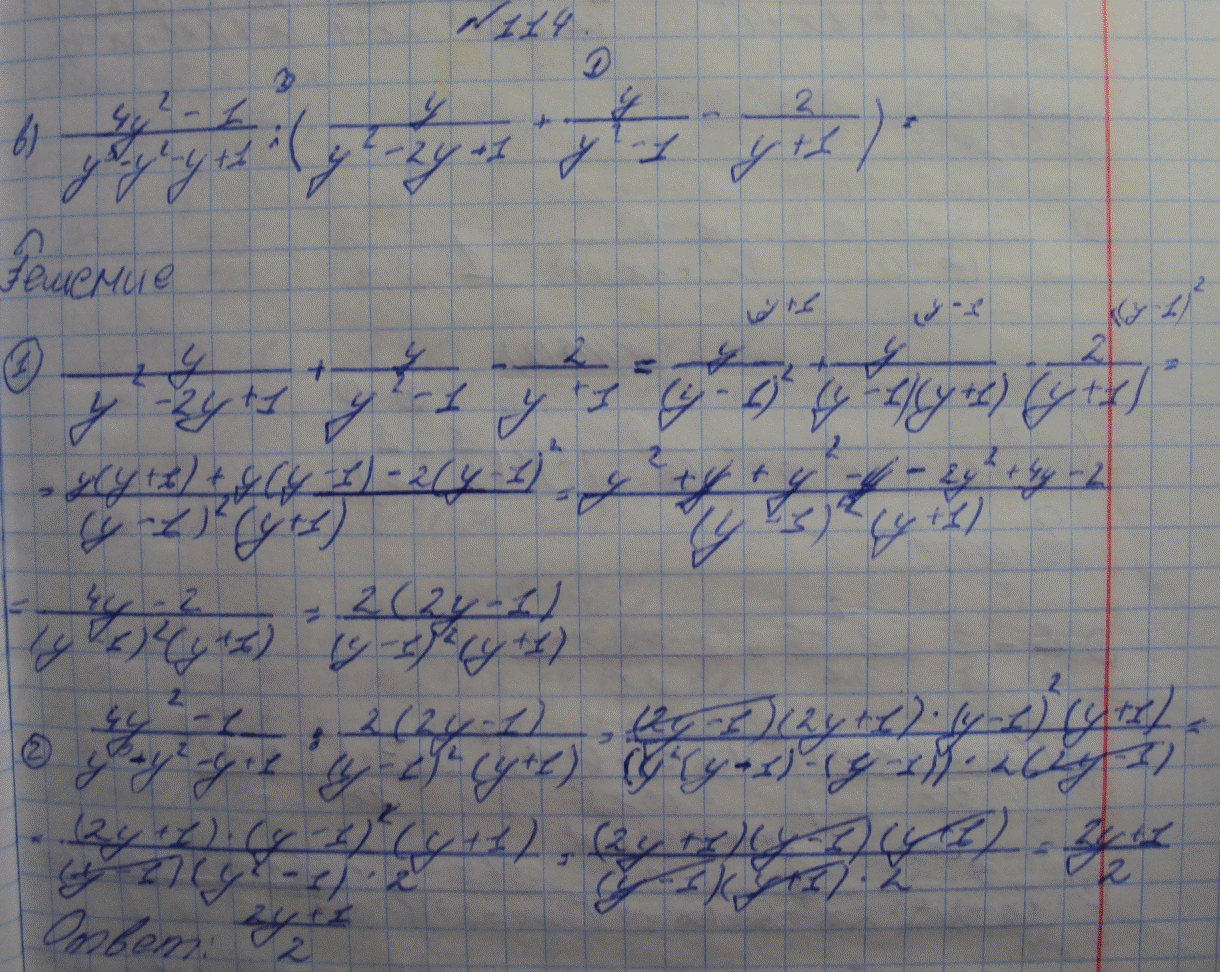 №114.
в) (4y² - 1)/(y³ - y² - y + 1) : ( y/(y² - 2y + 1) + y/(y² - 1) - 2/(y + 1) ) =
Решение
① y/(y² - 2y + 1) + y/(y² - 1) - 2/(y + 1) = y/(y - 1)² + y/((y - 1)(y + 1)) - 2/(y + 1) =
y+1 y-1 (y-1)²
= (y(y+1) + y(y-1) - 2(y-1)²)/((y-1)²(y+1)) = (y² + y + y² - y - 2y² + 4y - 2)/((y-1)²(y+1))
= (4y - 2)/((y-1)²(y+1)) = 2(2y-1)/((y-1)²(y+1))
② (4y² - 1)/(y³ - y² - y + 1) : 2(2y-1)/((y-1)²(y+1)) = ((2y-1)(2y+1)·(y-1)²(y+1))/((y²(y-1)-(y-1))·2(2y-1)) =
= ((2y+1)·(y-1)²(y+1))/((y-1)(y²-1)·2) = ((2y+1)(y-1)(y+1))/((y-1)(y+1)·2) = (2y+1)/2
Ответ: (2y+1)/2